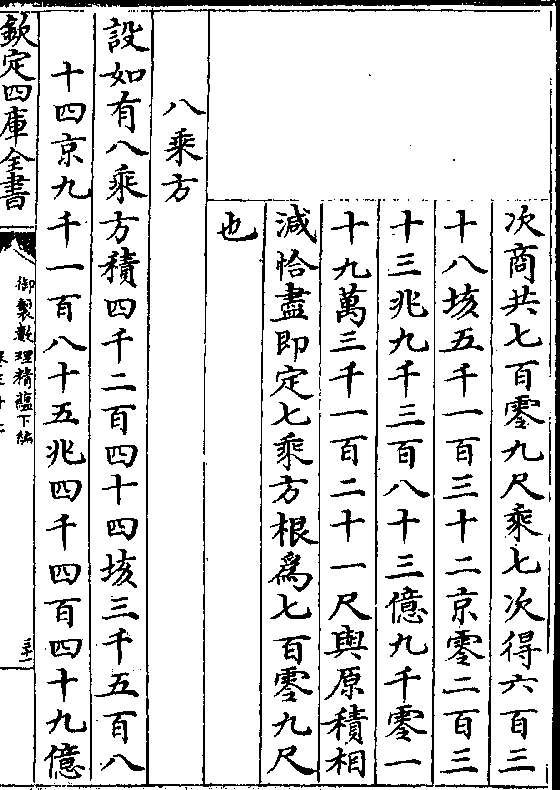 次商共七百零九尺乘七次得六百三
十八垓五千一百三十二京零二百三
十三兆九千三百八十三億九千零一
十九萬三千一百二十一尺與原積相
減恰盡即定七乘方根爲七百零九尺
也
八乘方
設如有八乘方積四千二百四十四垓三千五百八
十四京九千一百八十五兆四千四百四十九億
欽定四庫全書
御製數理精藴下編